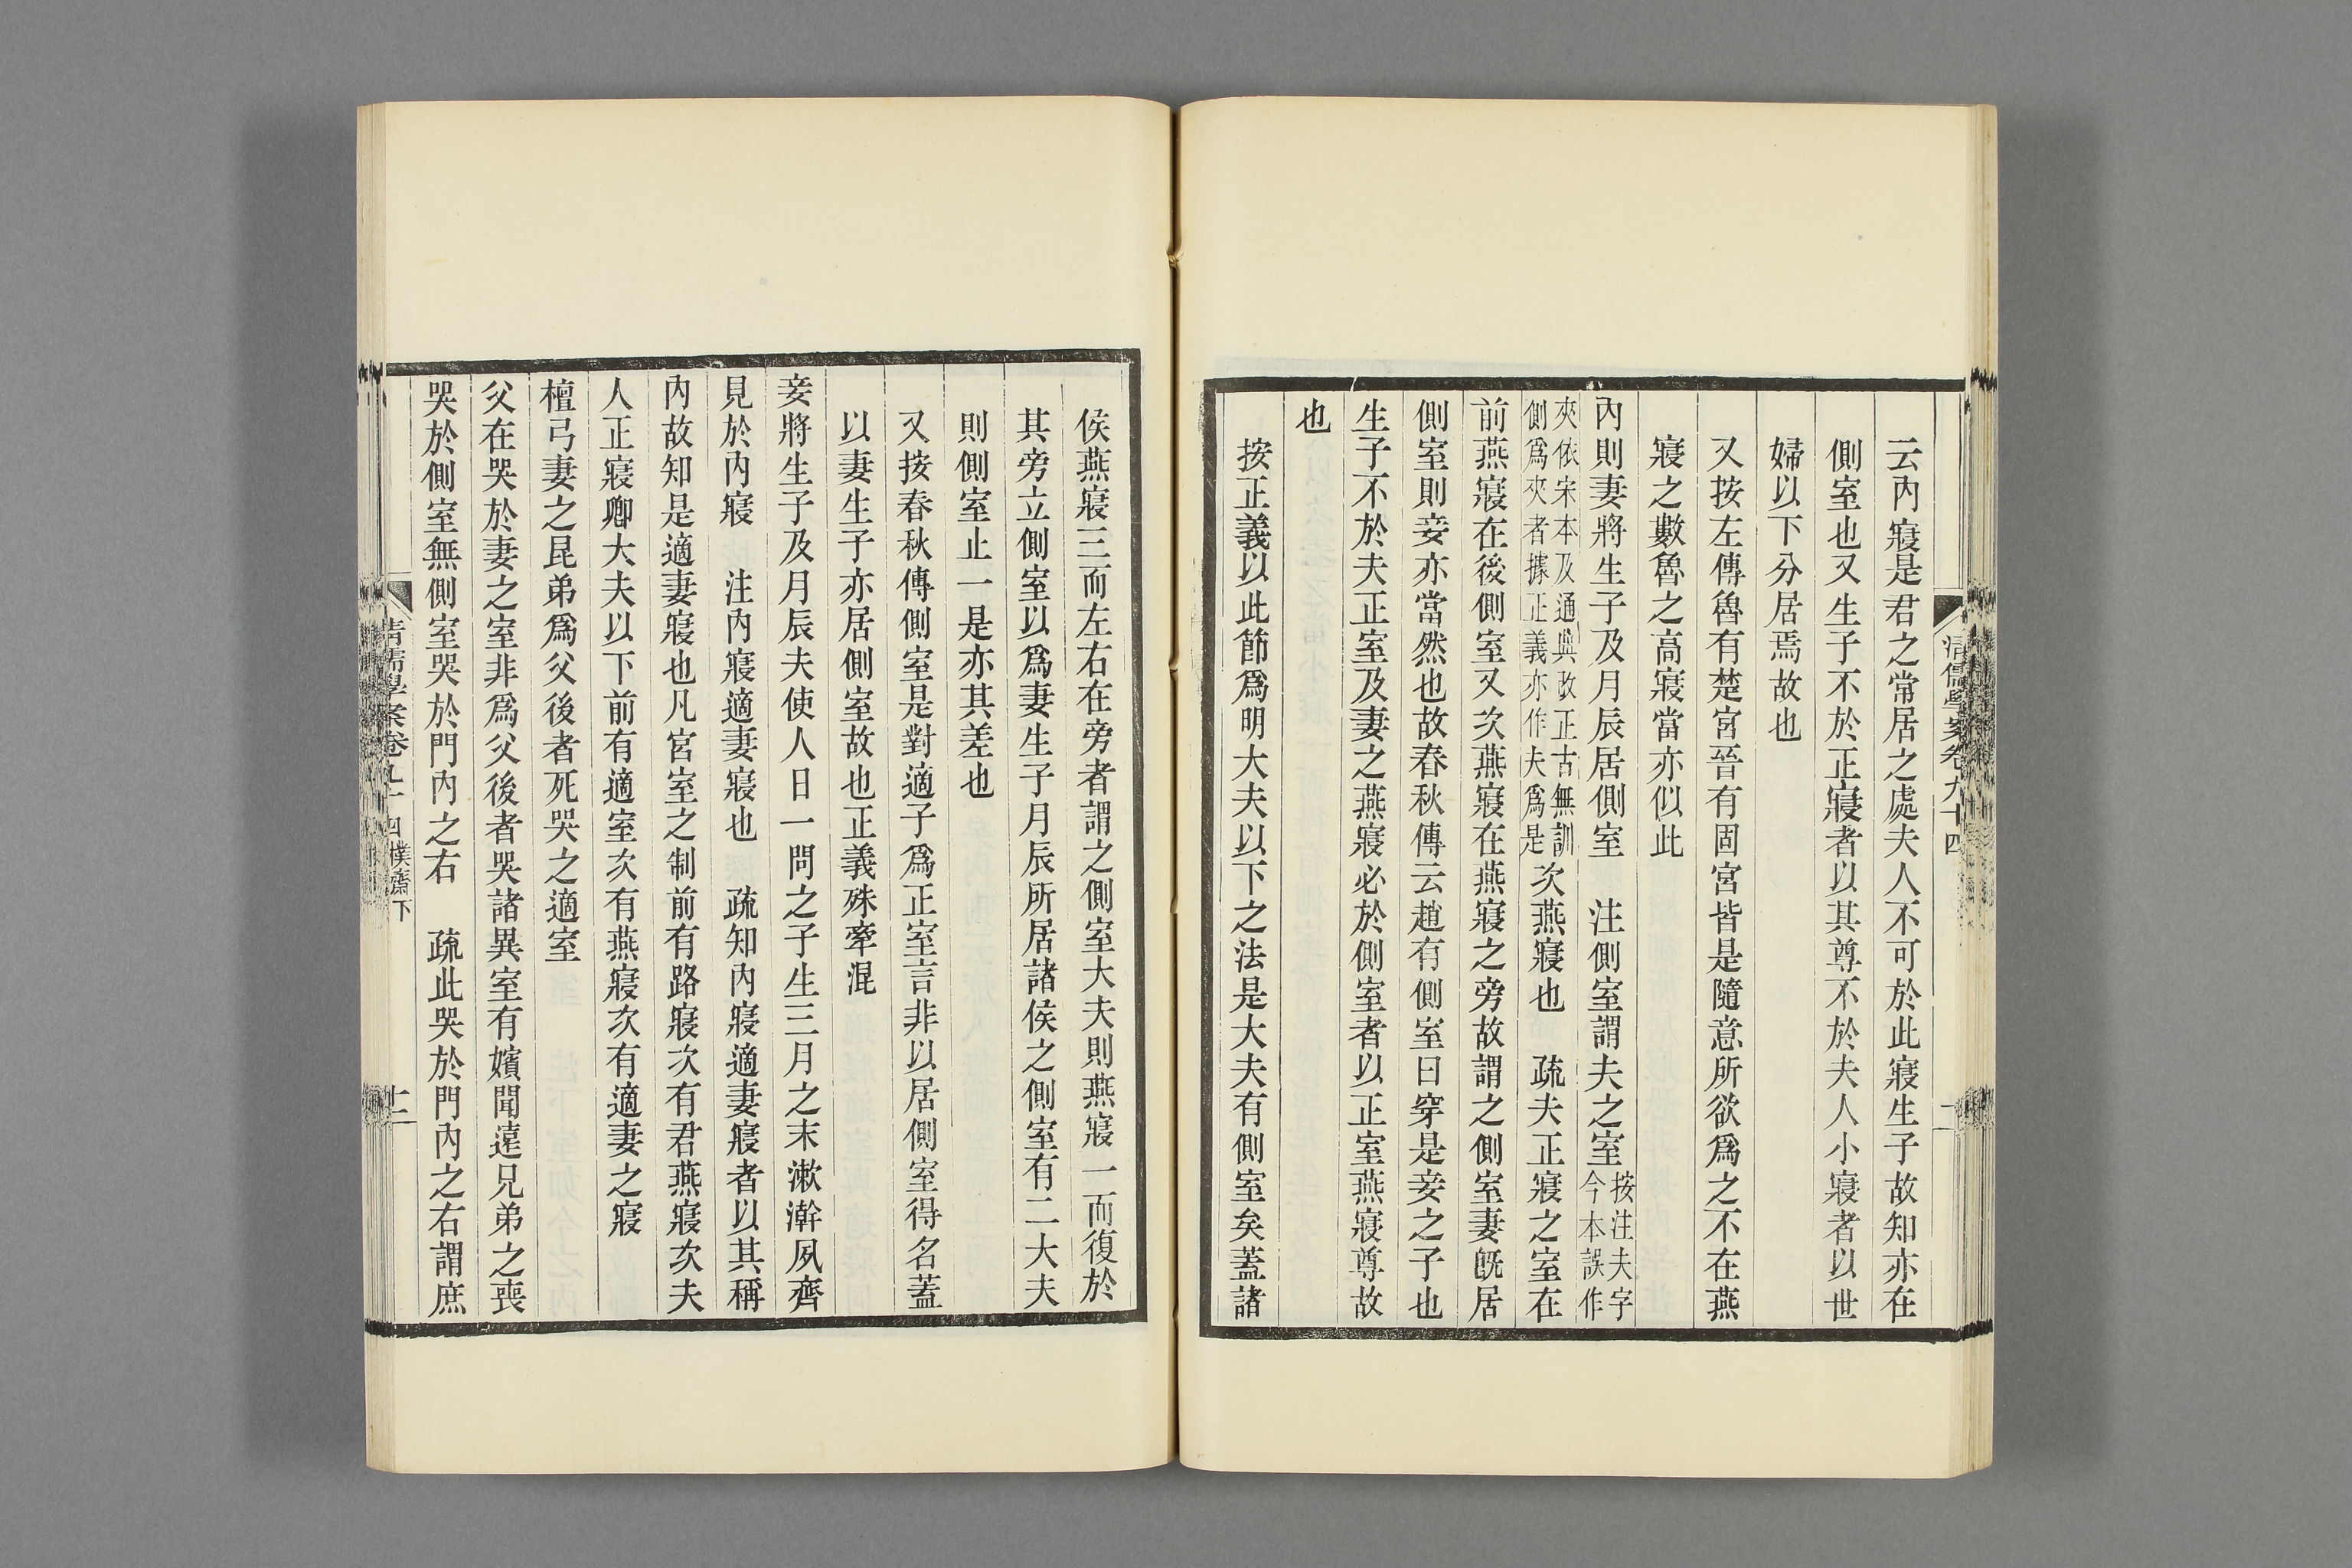 清儒學案卷九十四
云內寢是君之常居之處夫人不可於此寢生子故知亦在
側室也又生子不於正寢者以其尊不於夫人小寢者以世
婦以下分居焉故也
又按左傳魯有楚宮晉有固宮皆是隨意所欲爲之不在燕
寢之數魯之高寢當亦似此
內則妻將生子及月辰居側室　注側室謂夫之室按注夫字今本誤作
夾依宋本及通典改正古無訓側爲夾者據正義亦作夫爲是次燕寢也　疏夫正寢之室在
前燕寢在後側室又次燕寢在燕寢之旁故謂之側室妻旣居
側室則妾亦當然也故春秋傳云趙有側室曰穿是妾之子也
生子不於夫正室及妻之燕寢必於側室者以正室燕寢尊故
也
按正義以此節爲明大夫以下之法是大夫有側室矣蓋諸
侯燕寢三而左右在旁者謂之側室大夫則燕寢一而復於
其旁立側室以爲妻生子月辰所居諸侯之側室有二大夫
則側室止一是亦其差也
又按春秋傳側室是對適子爲正室言非以居側室得名蓋
以妻生子亦居側室故也正義殊牽混
妾將生子及月辰夫使人日一問之子生三月之末漱澣夙齊
見於內寢　注內寢適妻寢也　疏知內寢適妻寢者以其稱
內故知是適妻寢也凡宮室之制前有路寢次有君燕寢次夫
人正寢卿大夫以下前有適室次有燕寢次有適妻之寢
檀弓妻之昆弟爲父後者死哭之適室
父在哭於妻之室非爲父後者哭諸異室有嬪聞遠兄弟之喪
哭於側室無側室哭於門內之右　疏此哭於門內之右謂庶
清儒學案卷九十四 樸齋下
十二